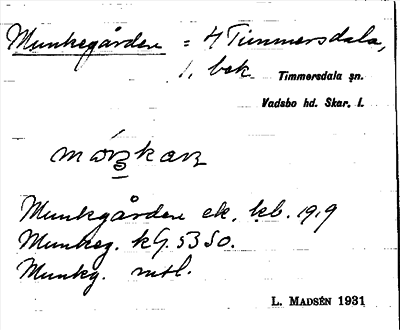 Munkegården = 4 Timmersdala,
1. bek Timmersdala sn.
Vadsbo hd. Skar. l.
Munkgården ek. kb. 1919
Munkeg. kG. 53 SO.
Munkg. mtl.
L. MADSÉN 1931